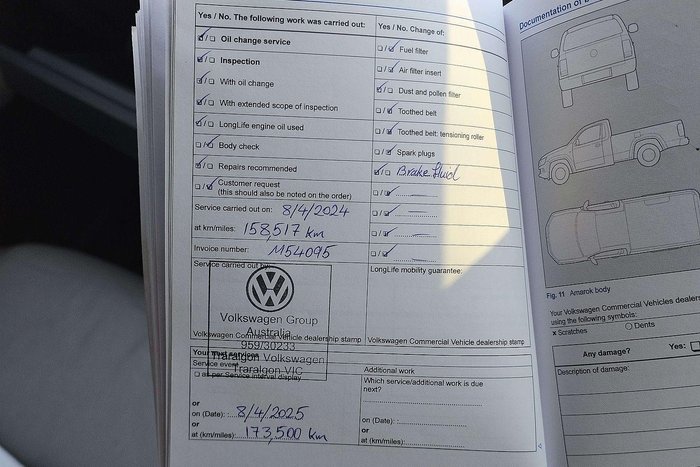 Yes / No. The following work was carried out:
Oil change service
Inspection
With oil change
With extended scope of inspection
LongLife engine oil used
Body check
Repairs recommended
Customer request
(this should also be noted on the order)
Service carried out on: 8/4/2024
at km/miles: 158,517 km
Invoice number: M54095
Service carried out by:
Volkswagen Group
Australia
959/30233
Traralgon Volkswagen
Traralgon VIC
Volkswagen Commercial Vehicle dealership stamp
Yes / No. Change of:
Fuel filter
Air filter insert
Dust and pollen filter
Toothed belt
Toothed belt: tensioning roller
Spark plugs
Brake fluid
LongLife mobility guarantee:
Volkswagen Commercial Vehicle dealership stamp
Your next services
Service event
as per Service interval display
or
on (Date): 8/4/2025
or
at (km/miles): 173,500 km
Additional work
Which service/additional work is due
next?
on (Date):
or
at (km/miles):
Documentation of
Fig. 11 Amarok body
Your Volkswagen Commercial Vehicles dealer
using the following symbols:
x Scratches
O Dents
Any damage?
Yes:
Description of damage: